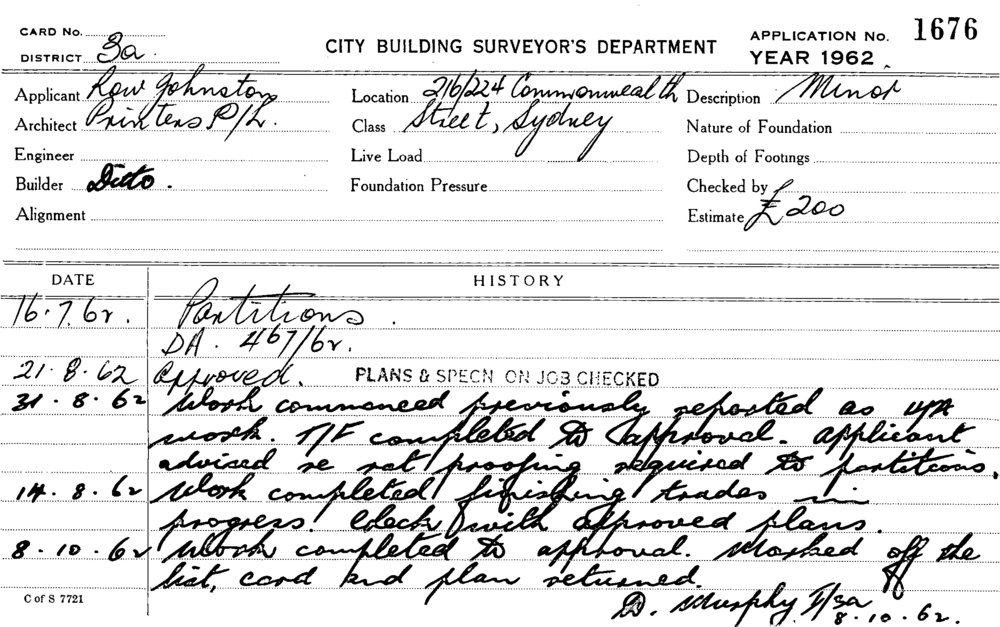 CARD No.
DISTRICT 3a.
CITY BUILDING SURVEYOR'S DEPARTMENT
APPLICATION No. 1676
YEAR 1962
Applicant Row Johnston
Architect Printers P/L.
Engineer
Builder Ditto.
Alignment
Location 216/224 Commonwealth
Class Street, Sydney
Live Load
Foundation Pressure
Description Minor
Nature of Foundation
Depth of Footings
Checked by
Estimate £ 200
DATE HISTORY
16.7.62. Partitions.
DA. 467/62.
21.8.62 Approved. PLANS & SPECN ON JOB CHECKED
31.8.62 Work commenced previously reported as
work. T/F completed to approval. Applicant
advised re rat proofing required to partitions.
14.8.62 Work completed finishing trades in
progress. Check with approved plans.
8.10.62 Work completed to approval. Marked off the
list, card and plan returned.
D. Murphy I/3a
8.10.62.
C of S 7721